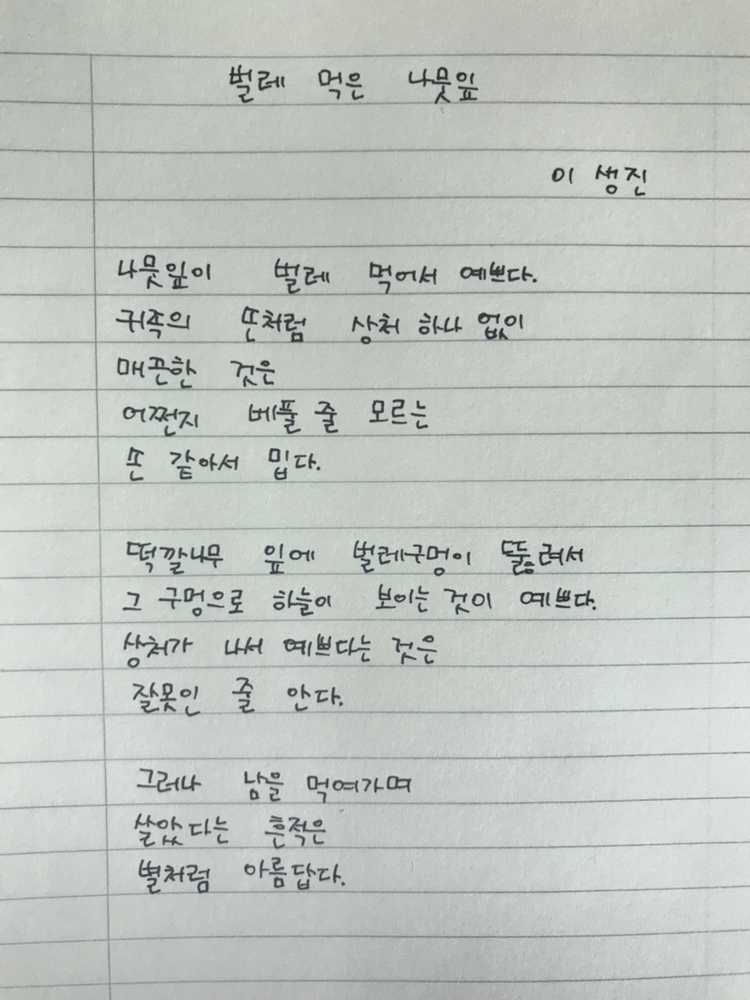 벌레 먹은 나뭇잎
이 생진
나뭇잎이 벌레 먹어서 예쁘다.
귀족의 손처럼 상처 하나 없이
매끈한 것은
어쩐지 베풀 줄 모르는
손 같아서 밉다.
떡갈나무 잎에 벌레구멍이 뚫려서
그 구멍으로 하늘이 보이는 것이 예쁘다.
상처가 나서 예쁘다는 것은
잘못인 줄 안다.
그러나 남을 먹여가며
살았다는 흔적은
별처럼 아름답다.